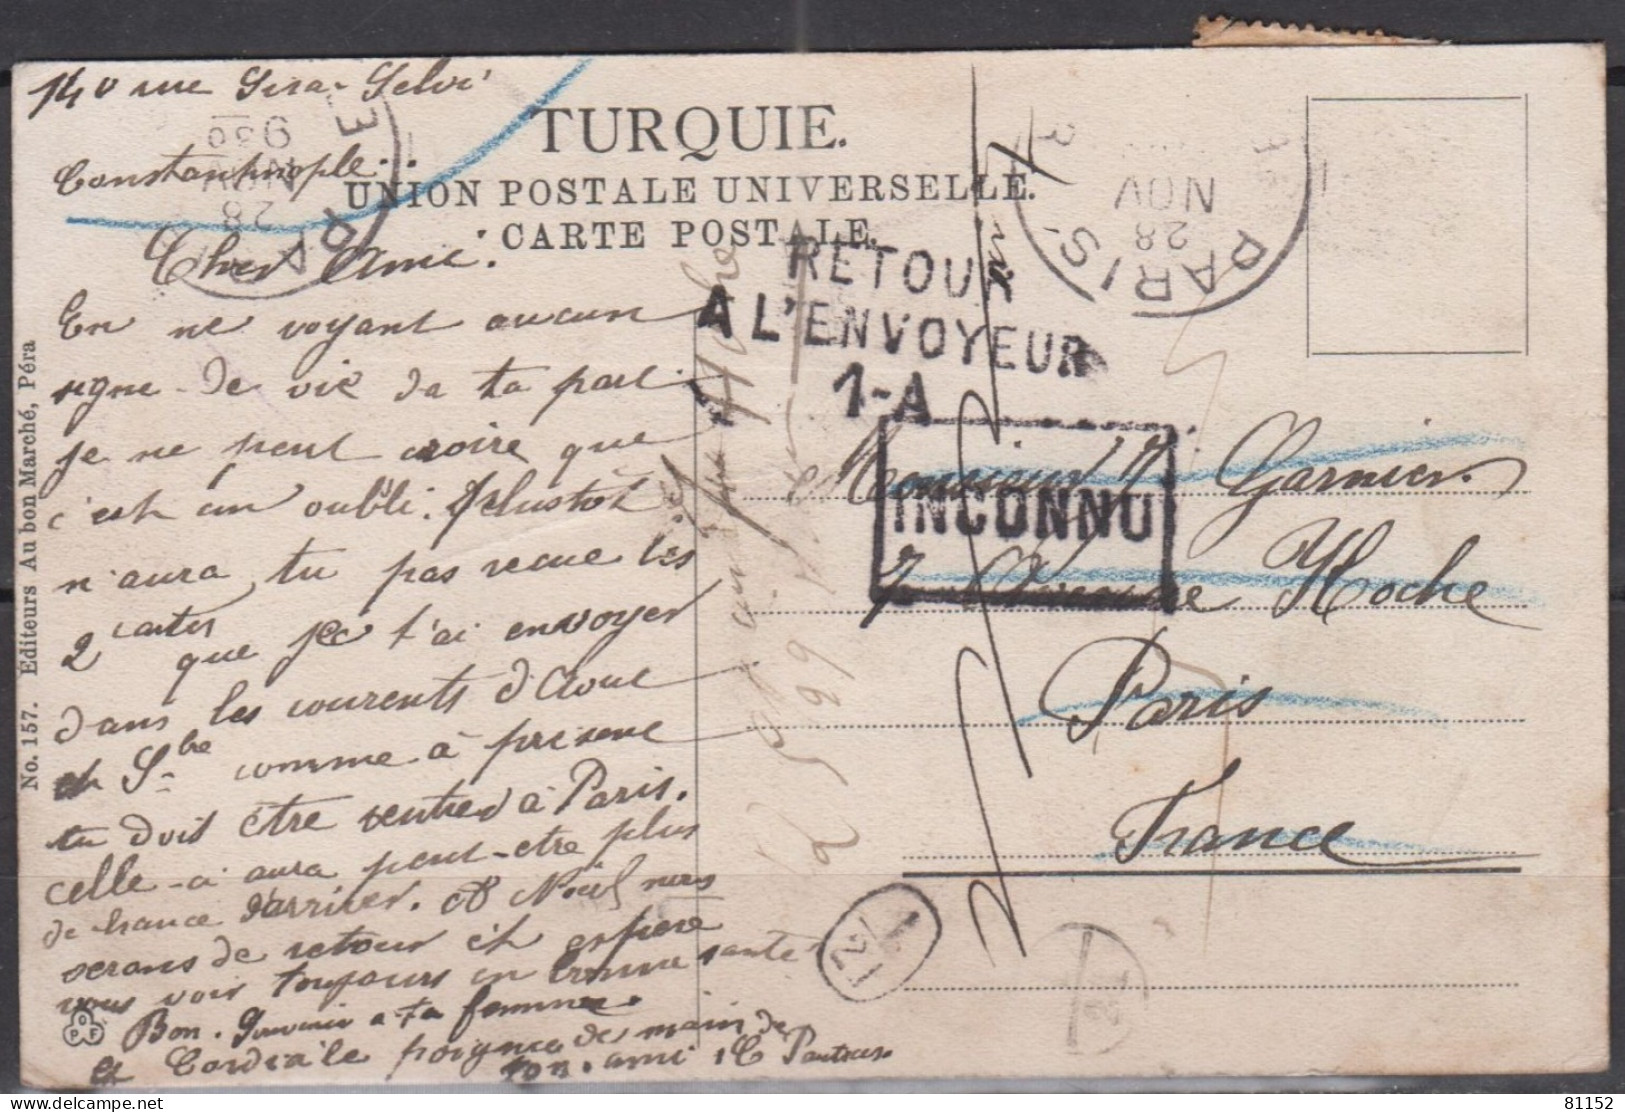 140 rue Sira-Selvi
Constantinople..
Cher Ami:
En ne voyant aucun
signe de vie da ta part
je ne peut croire que
c'est un oubli. plustot
n'aura tu pas recue les
2 cartes que je t'ai envoyer
dans les courents d'Aout
et Sbre comme à présent
tu dois être rentred à Paris.
celle-ci aura peut-etre plus
de chance d'arriver. A Noël nous
serons de retour et espere
vous voir toujours en bonne santé
Bon. Souvenir a ta femme.
et Cordiale poignée de main de
ton. ami
No. 157. Editeurs Au bon Marché, Péra
TURQUIE.
UNION POSTALE UNIVERSELLE.
CARTE POSTALE.
RETOUR
A L'ENVOYEUR
1-A
INCONNU
PARIS
28
NOV
28
NOV
930
Monsieur Garnier.
7 Avenue Hoche
Paris
France
81152